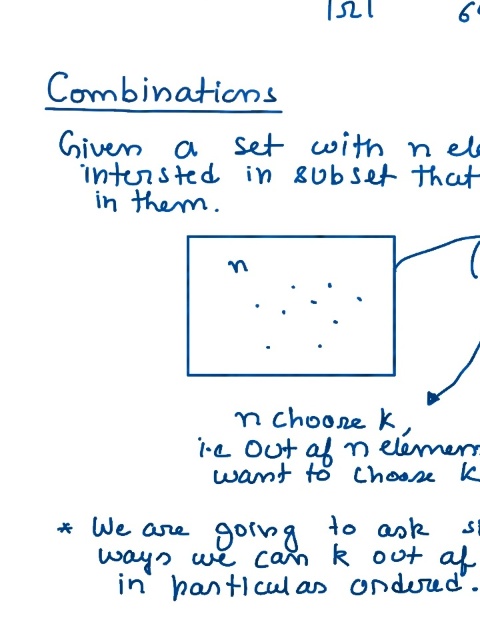 |Ω| 6
Combinations
Given a set with n ele
intersted in subset that
in them.
n
n choose k,
i.e out of n elemen
want to choose k
* We are going to ask s
ways we can k out of
in particulas ordered.